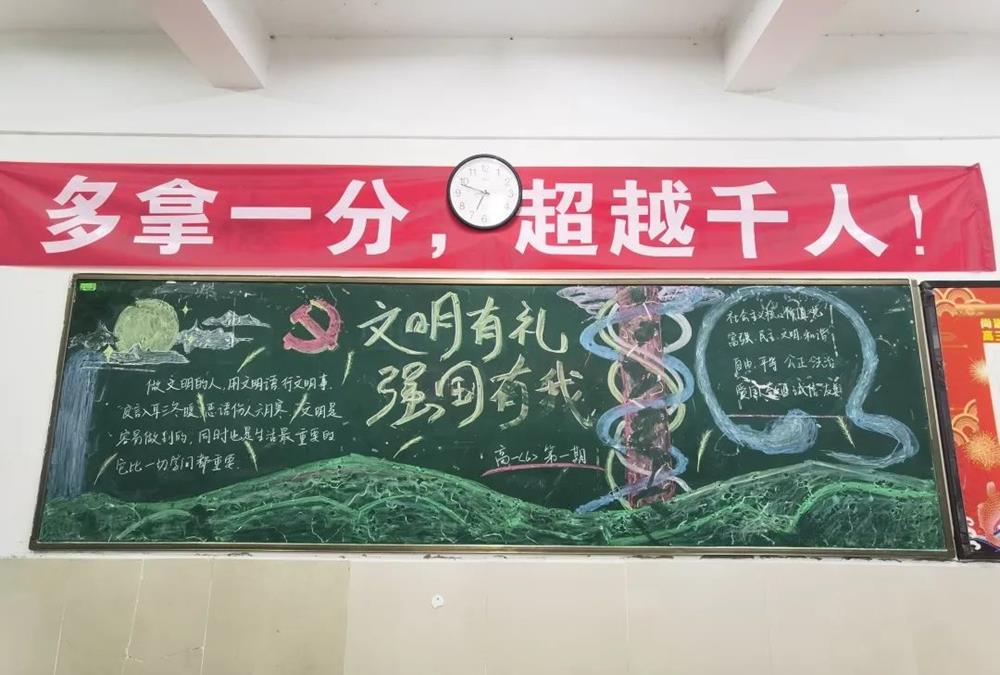 多拿一分，超越千人！
12
11
1
10
2
9
3
8
4
7
5
6
文明有礼
强国有我
做文明的人，用文明语 行文明事，
良言入耳三冬暖 恶语伤人六月寒，文明是
容易做到的，同时也是生活最重要的
它比一切学问都重要.
高一<6> 第一期
社会主义核心价值观
富强 民主 文明 和谐
自由 平等 公正 法治
爱国 敬业 诚信 友善
高三